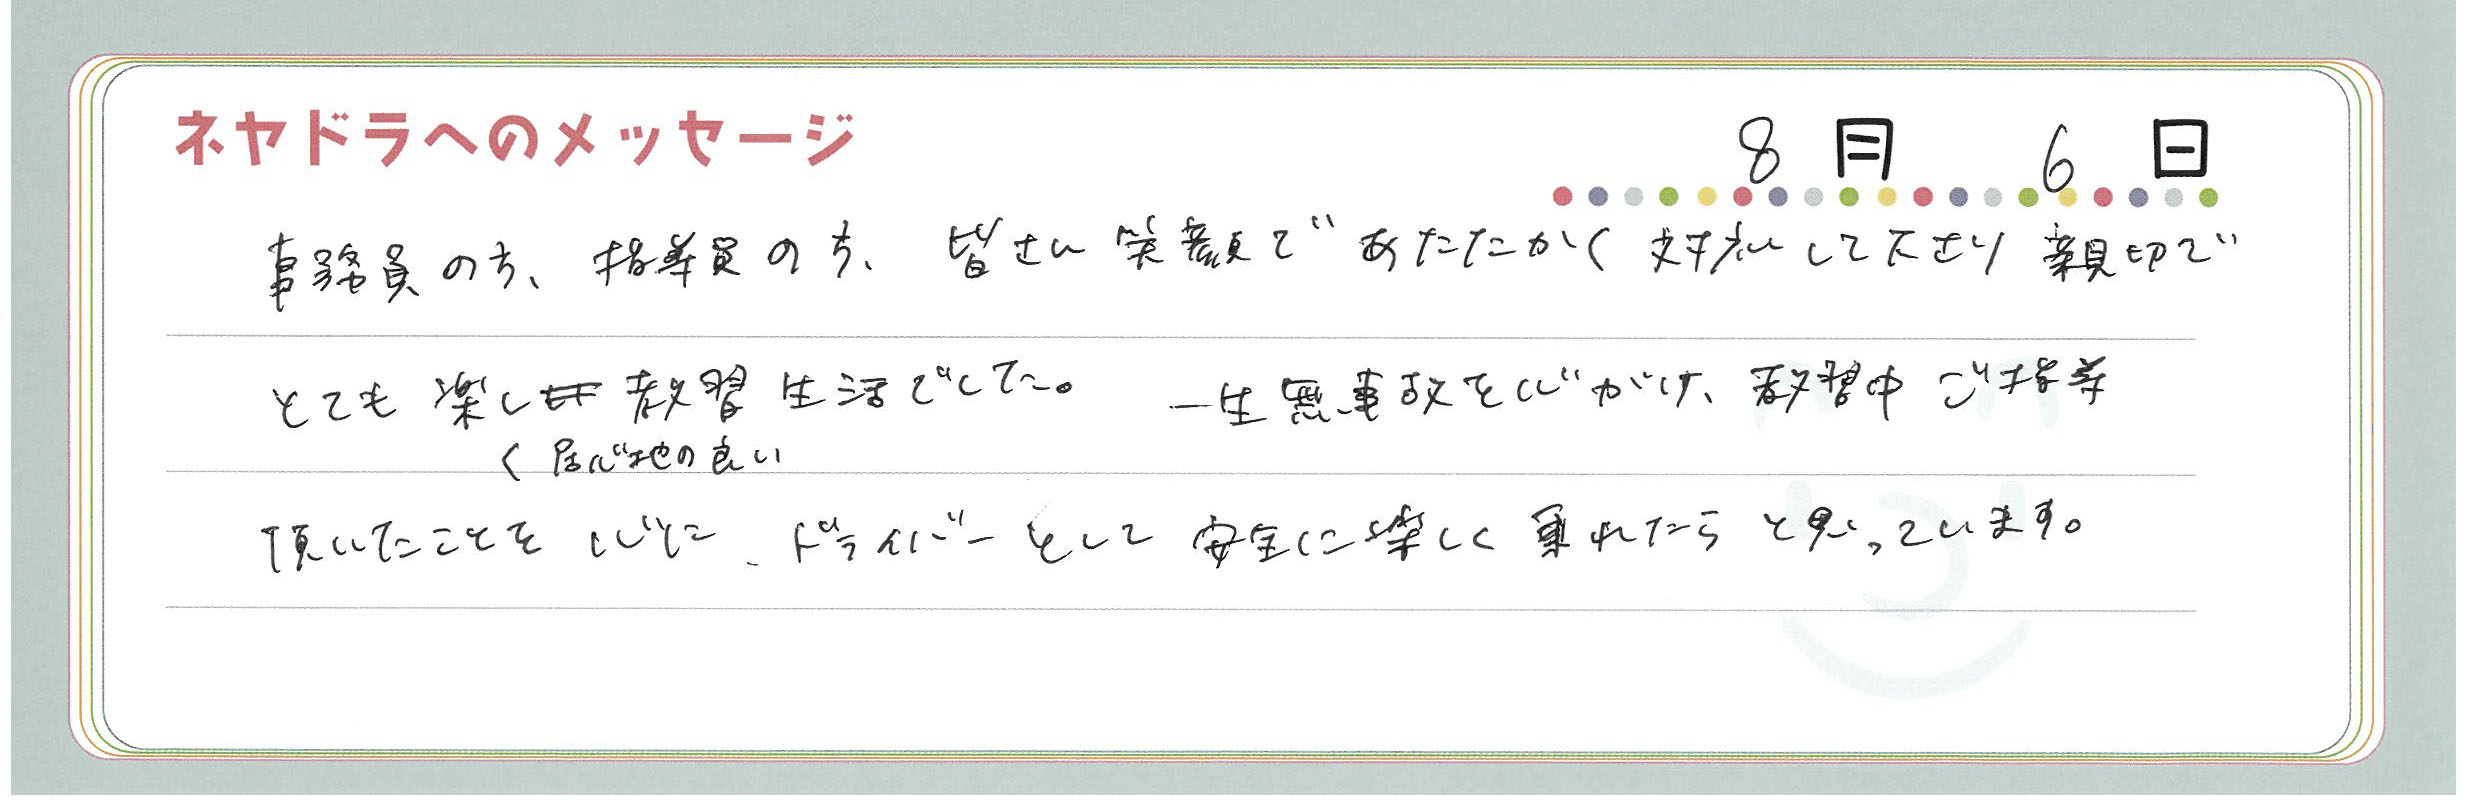 ネヤドラへのメッセージ
8月 6日
事務員の方、指導員の方、皆さん笑顔であたたかく対応して下さり親切で
とても楽し教習生活でした。 一生無事故を心がけ、教習中ご指導
く居心地の良い
頂いたことを心に、ドライバーとして安全に楽しく乗れたらと思っています。